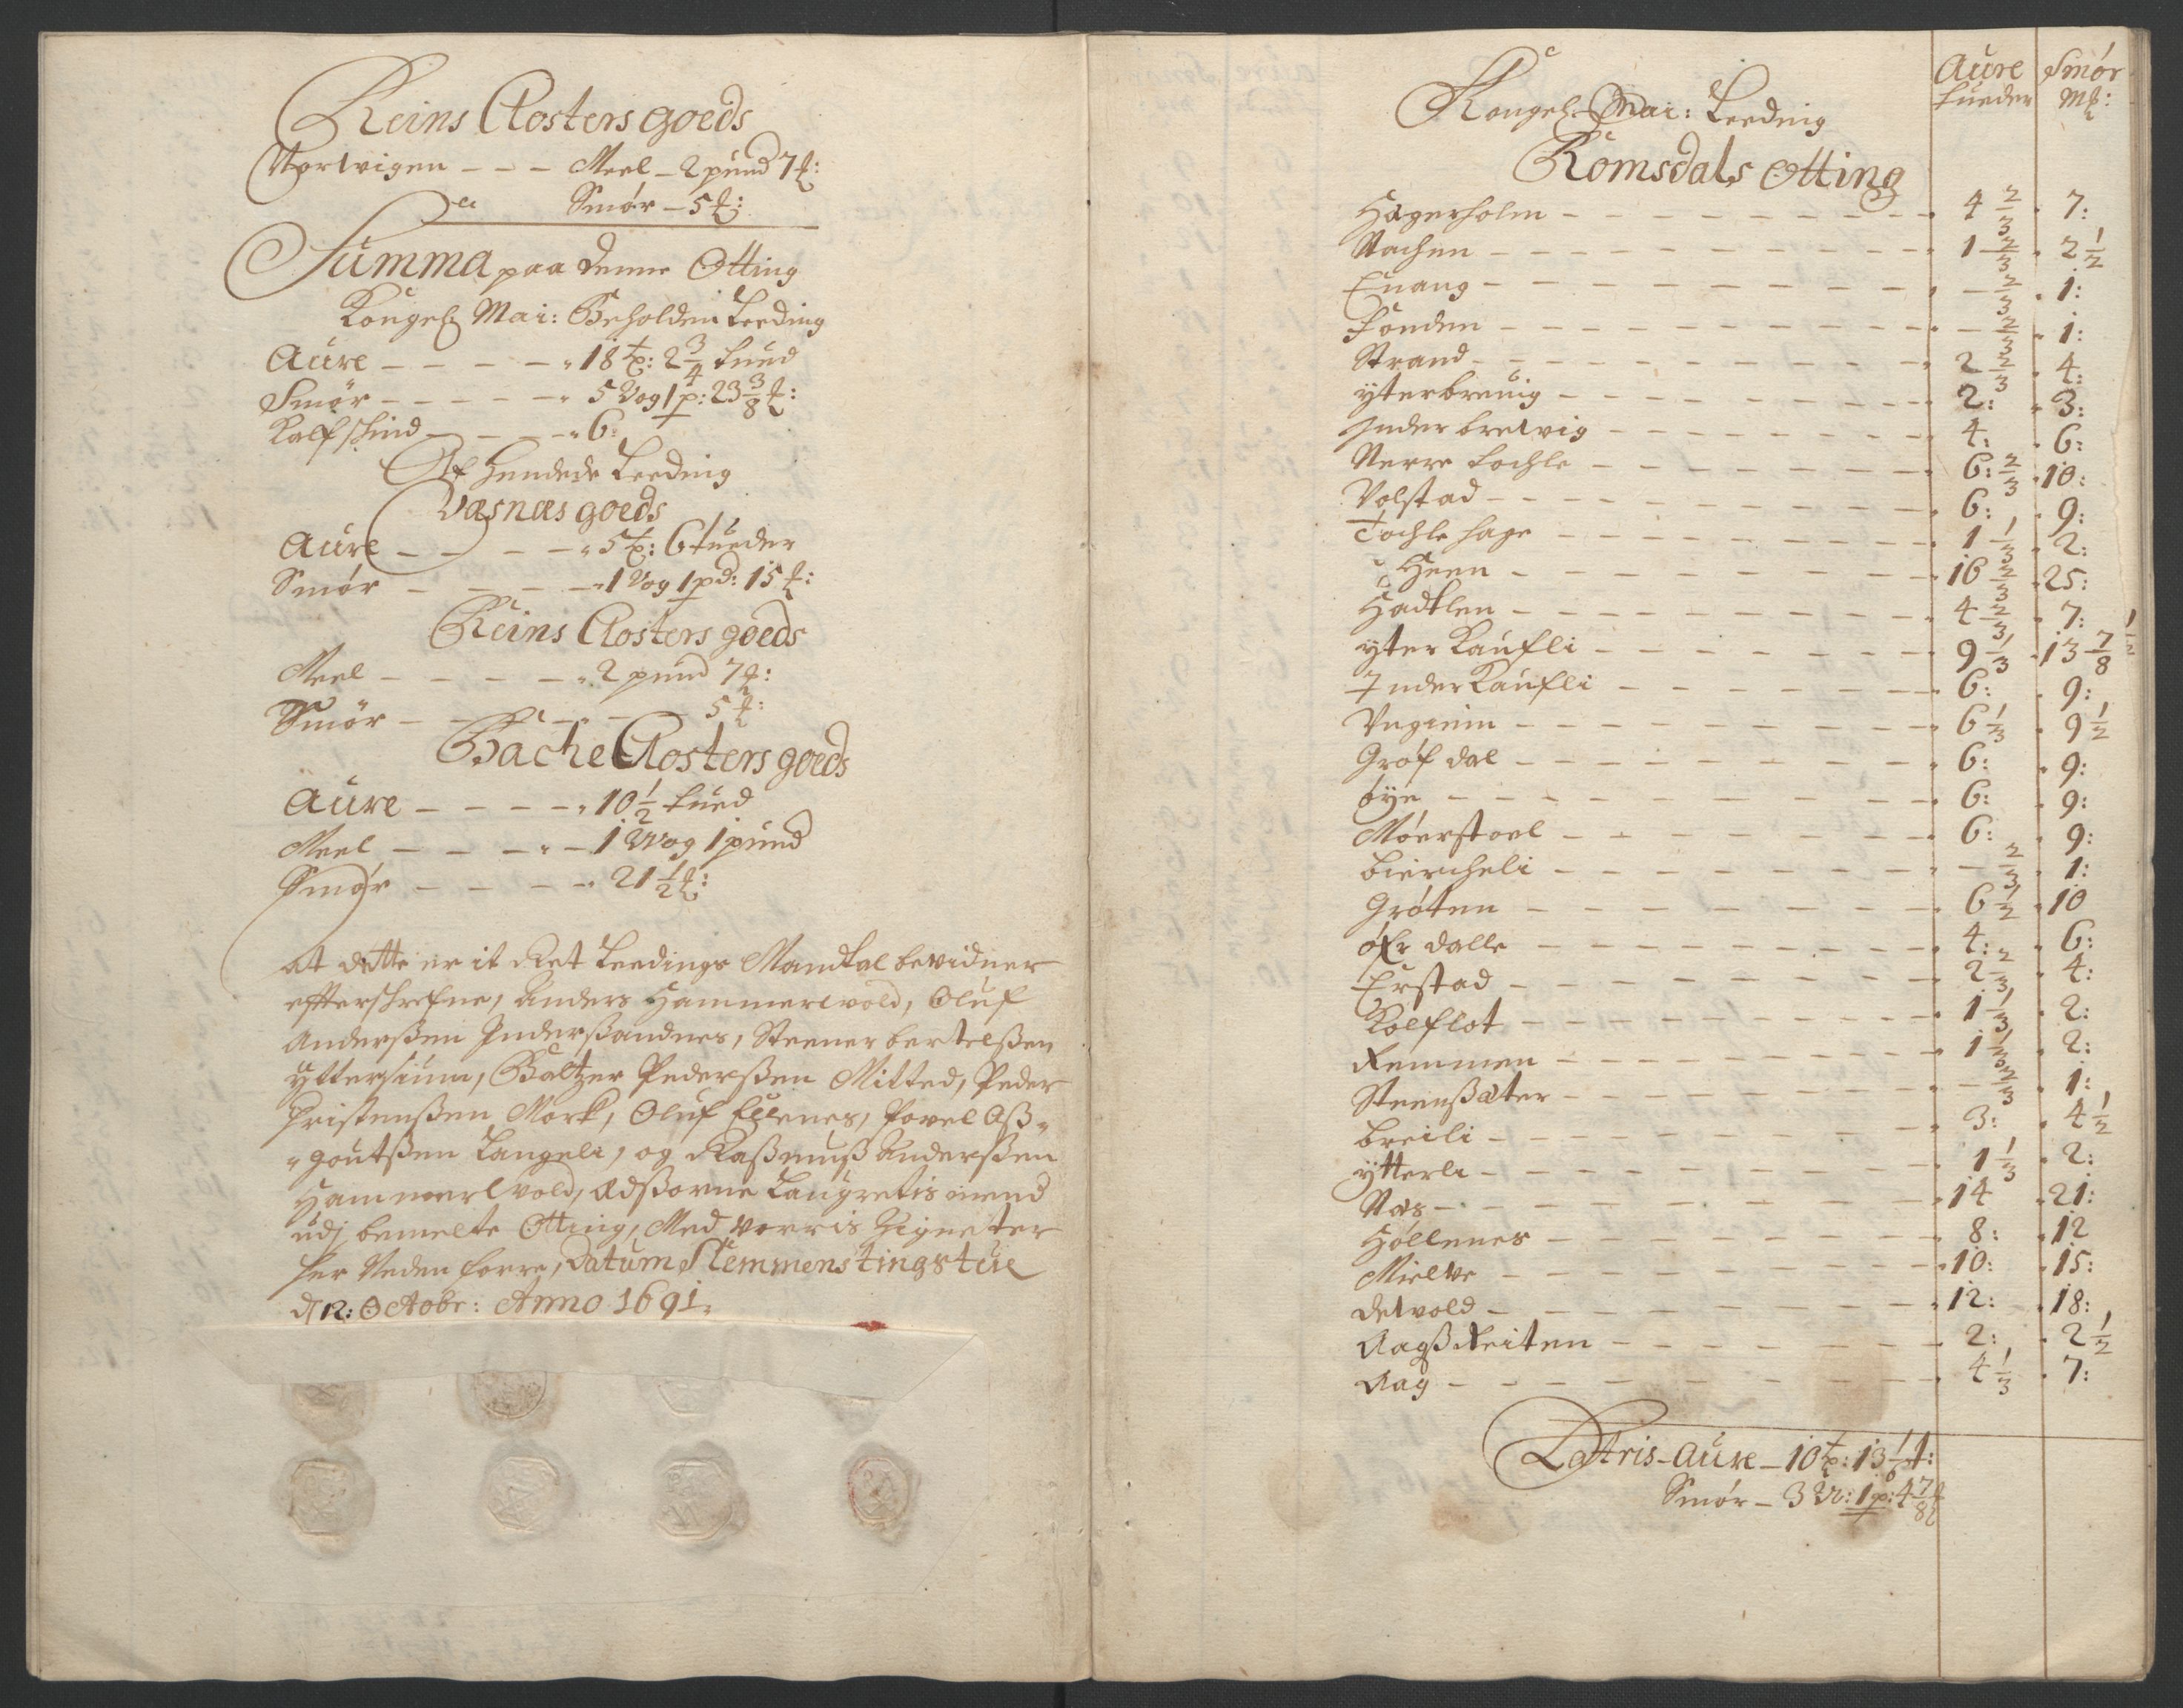 Reins Closters goeds
Nortvigen - - - Meel - 2 pund 7 ℔:
Smør - 5 ℔:
Summa paa denne Otting
Kongel: Mai: Beholden Leeding
Aure - - - - - 18 : 2 3/4 tued
Smør - - - - - 5 Vog 1 p: 23 3/8 ℔:
Kalfschind - - - - 6:
Af hendede Leeding
Væsnæs goeds
Aure - - - - 5 : 6 tueder
Smør - - - - 1 Vog 1 pd: 15 ℔:
Reins Closters goeds
Meel - - - - - 2 pund 7 ℔:
Smør - - - - - 5 ℔:
Bache Closters goeds
Aure - - - - 10 1/2 tued
Meel - - - - 1 Wog 1 pund
Smør - - - - 21 1/2 ℔:
At dette er it Ret Leedings Mandtal bevidner
effterschrefne, Anders Hammervold, Oluf
Anderßen Inderßandnes, Steener bertelßen
Yttersium, Baltzer Pederßen Mitted, Peder
Christenßen Mork, Oluf Ellenes, Povel Aß-
goutßen Langeli, og Raßmuß Anderßen
Hammervold, Ædßorne Laugretis mend
udj bemelte Otting, Med vorris Zigneter
her Neden forre, Datum Klemmens tingstue
d 12: Octobr: Anno 1691.
Aure Smør
tueder M℔:
Kongel: Mai: Leeding
Romsdals Otting
Hagerholm - - - 4 2/3 7:
Nachen - - - 1 2/3 2 1/2
Enang - - - 2/3 1:
Sonden - - - 2/3 1:
Strand - - - 2 2/3 4:
yterbrevig - - - 2: 3:
Inder bretvig - - - 4: 6:
Nerre tochle - - - 6: 2/3 10:
Volstad - - - 6: 9:
Tochle hage - - - 1 1/3 2:
Heen - - - 16 2/3 25:
Hadtlen - - - 4 2/3 7:
yter Kaufli - - - 9 1/3 13 7/8
Inder Kaufli - - - 6: 9:
Ungium - - - 6 1/3 9 1/2
Grøf dal - - - 6: 9:
øye - - - 6: 9:
Møerstoel - - - 6: 9:
biercheli - - - 2/3 1:
Grøten - - - 6 1/2 10
øfr dalle - - - 4: 6:
Erstad - - - 2 2/3 4:
Kolflot - - - 1 1/3 2:
Remmen - - - 1 1/3 2:
Steenßæter - - - 2/3 1:
breili - - - 3: 4 1/2
ytterli - - - 1 1/3 2:
Næs - - - 14 21:
Høllenes - - - 8: 12
Mielve - - - 10: 15:
detvold - - - 12: 18:
Aagß Reiten - - - 2: 2 1/2
Aag - - - 4 1/3 7:
Latris - Aure - 10 : 13 1/6 t:
Smør - 3 W: 1 p: 4 7/8 ℔